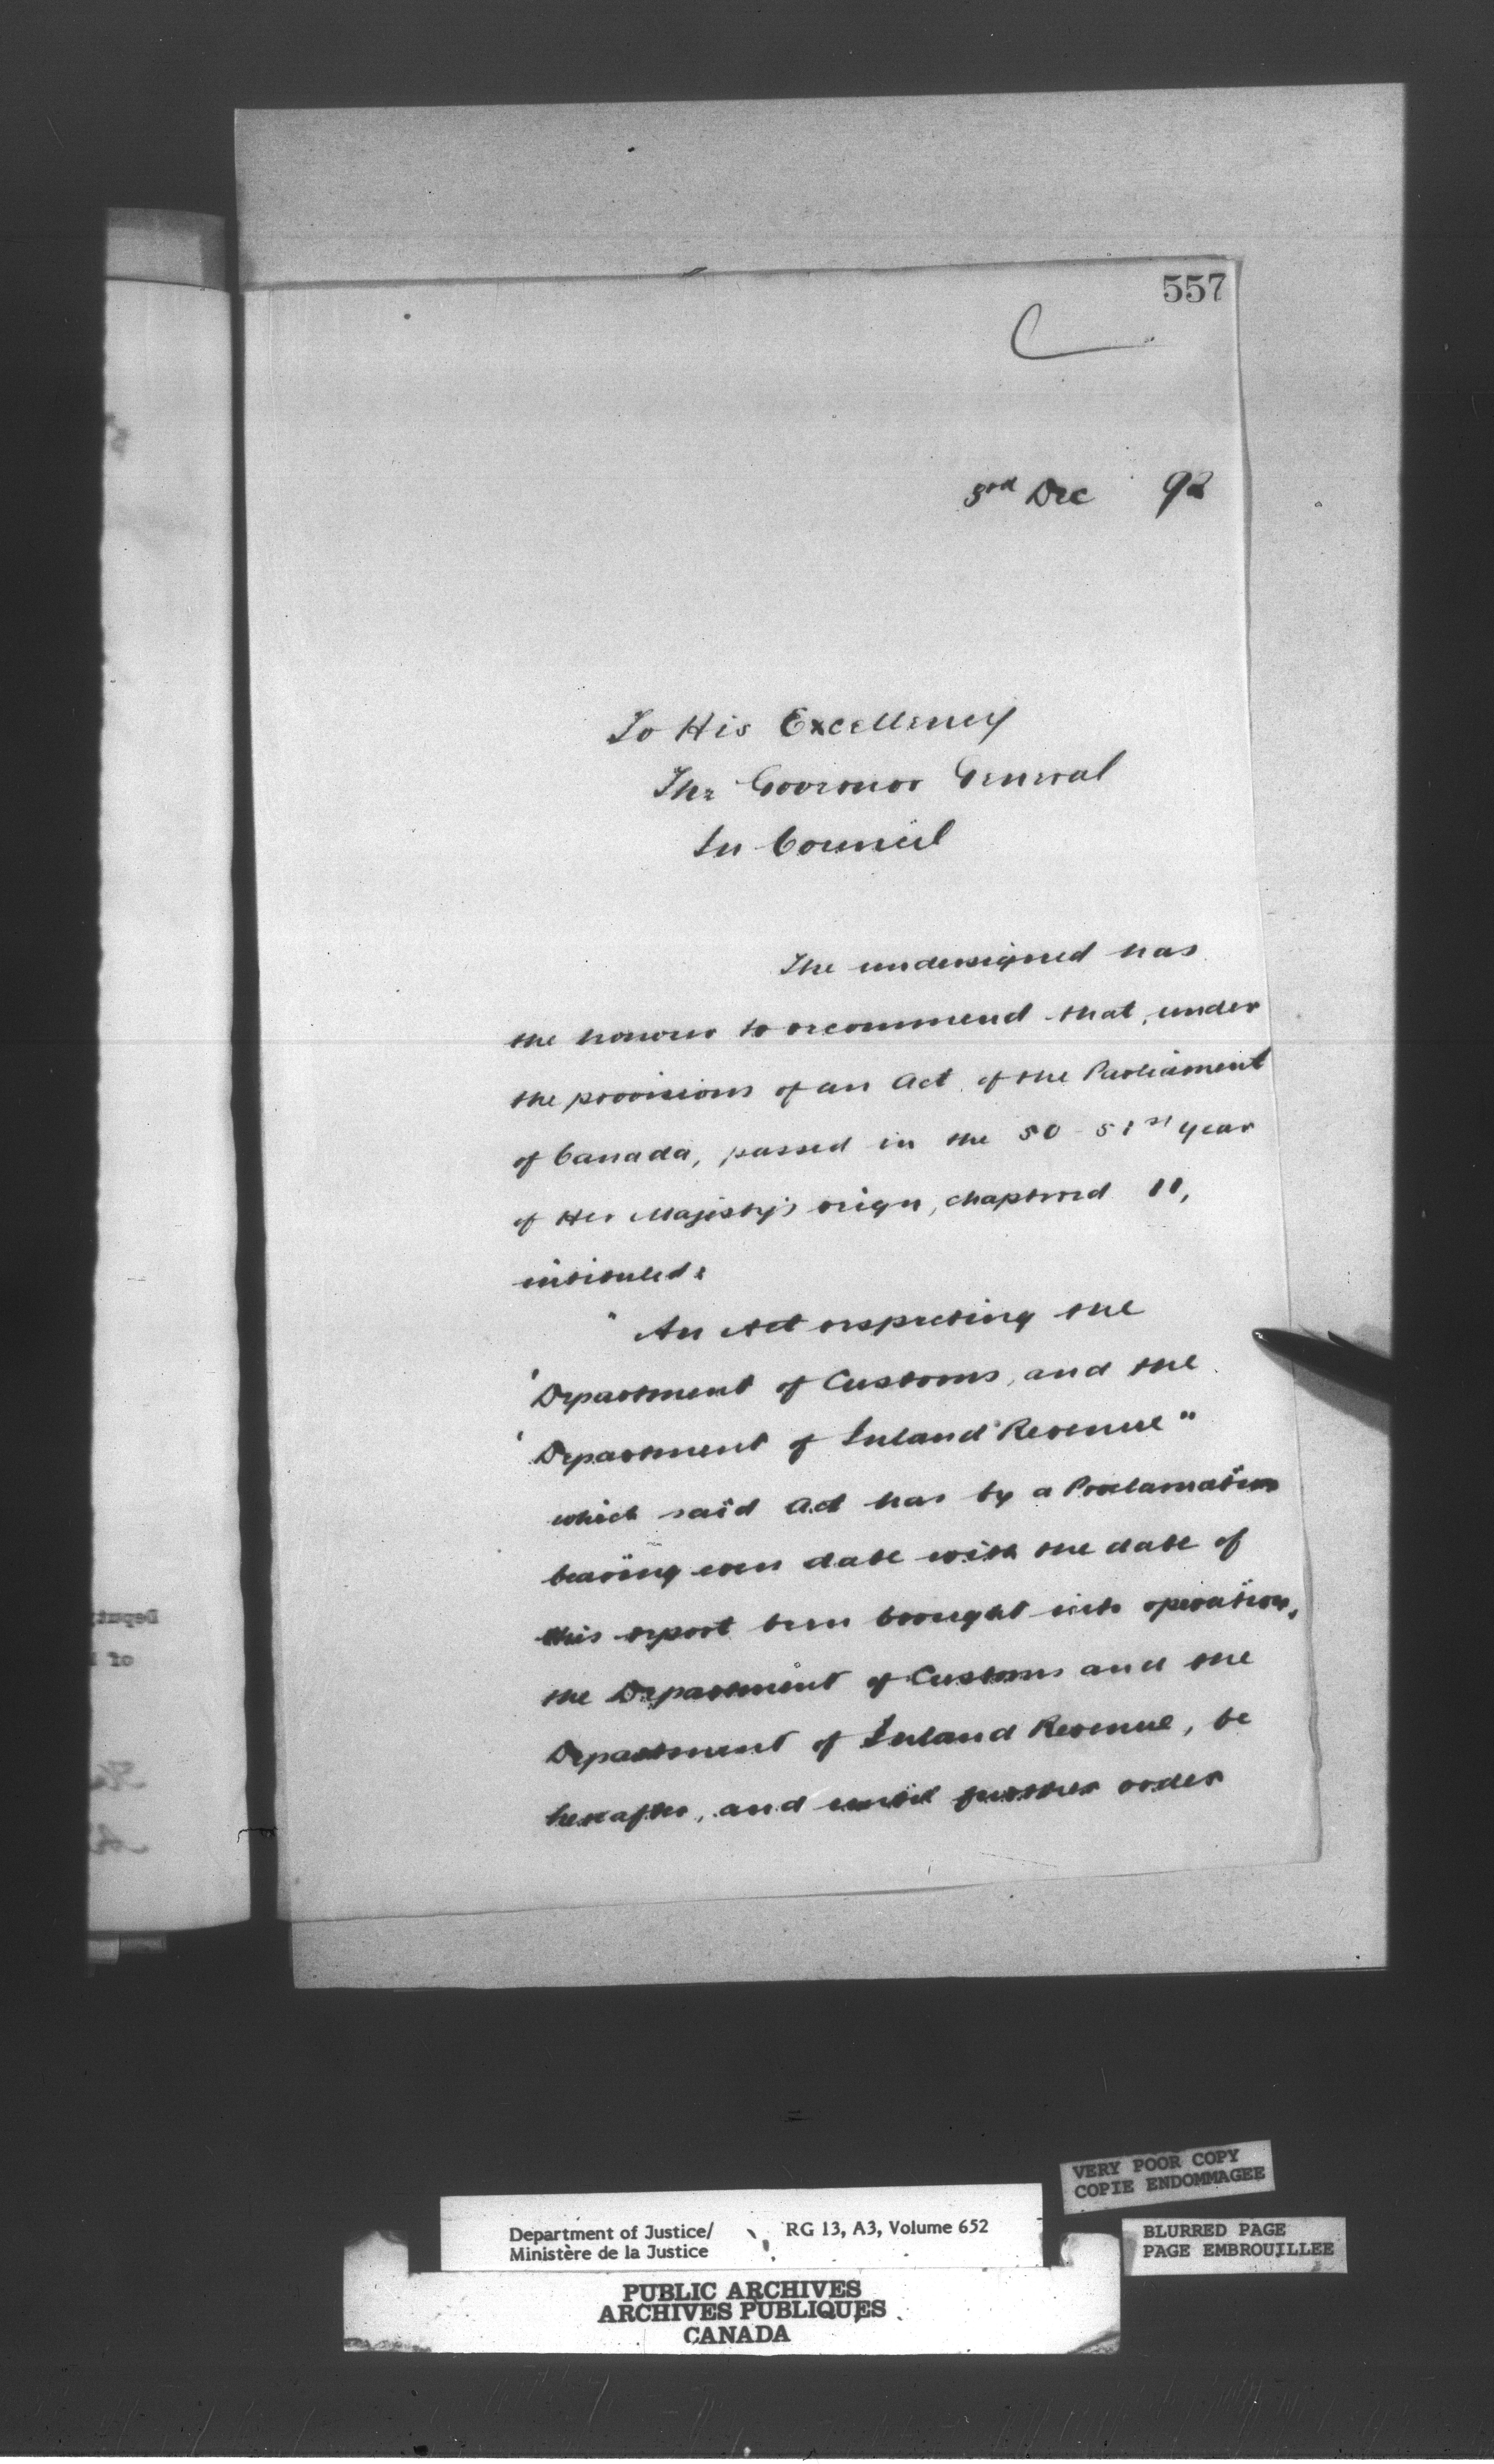 557
3rd Dec 92
To His Excellency
The Governor General
In Council
The undersigned has
the honour to recommend that, under
the provisions of an Act of the Parliament
of Canada, passed in the 50-51st year
of Her Majesty's reign, chaptered 11,
intituled:
"An Act respecting the
'Department of Customs, and the
'Department of Inland Revenue"
which said Act has by a Proclamation
bearing even date with the date of
this report been brought into operation,
the Department of Customs and the
Department of Inland Revenue, be
hereafter, and until further order
VERY POOR COPY
COPIE ENDOMMAGEE
Department of Justice/ RG 13, A3, Volume 652
Ministère de la Justice
BLURRED PAGE
PAGE EMBROUILLEE
PUBLIC ARCHIVES
ARCHIVES PUBLIQUES
CANADA